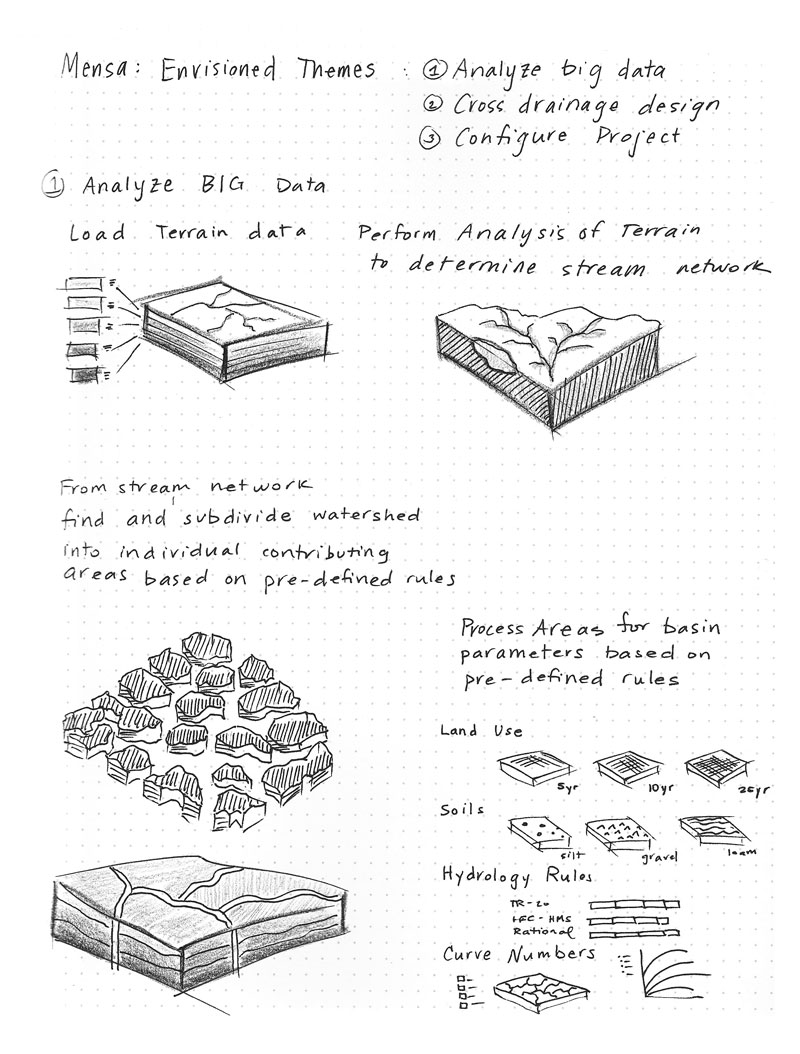 Mensa: Envisioned Themes : ① Analyze big data
② Cross drainage design
③ Configure Project
① Analyze BIG Data
Load Terrain data
Perform Analysis of Terrain
to determine stream network
From stream network
find and subdivide watershed
into individual contributing
areas based on pre-defined rules
Process Areas for basin
parameters based on
pre-defined rules
Land Use
5yr 10yr 25yr
Soils
silt gravel loam
Hydrology Rules
TR-20
HEC-HMS
Rational
Curve Numbers